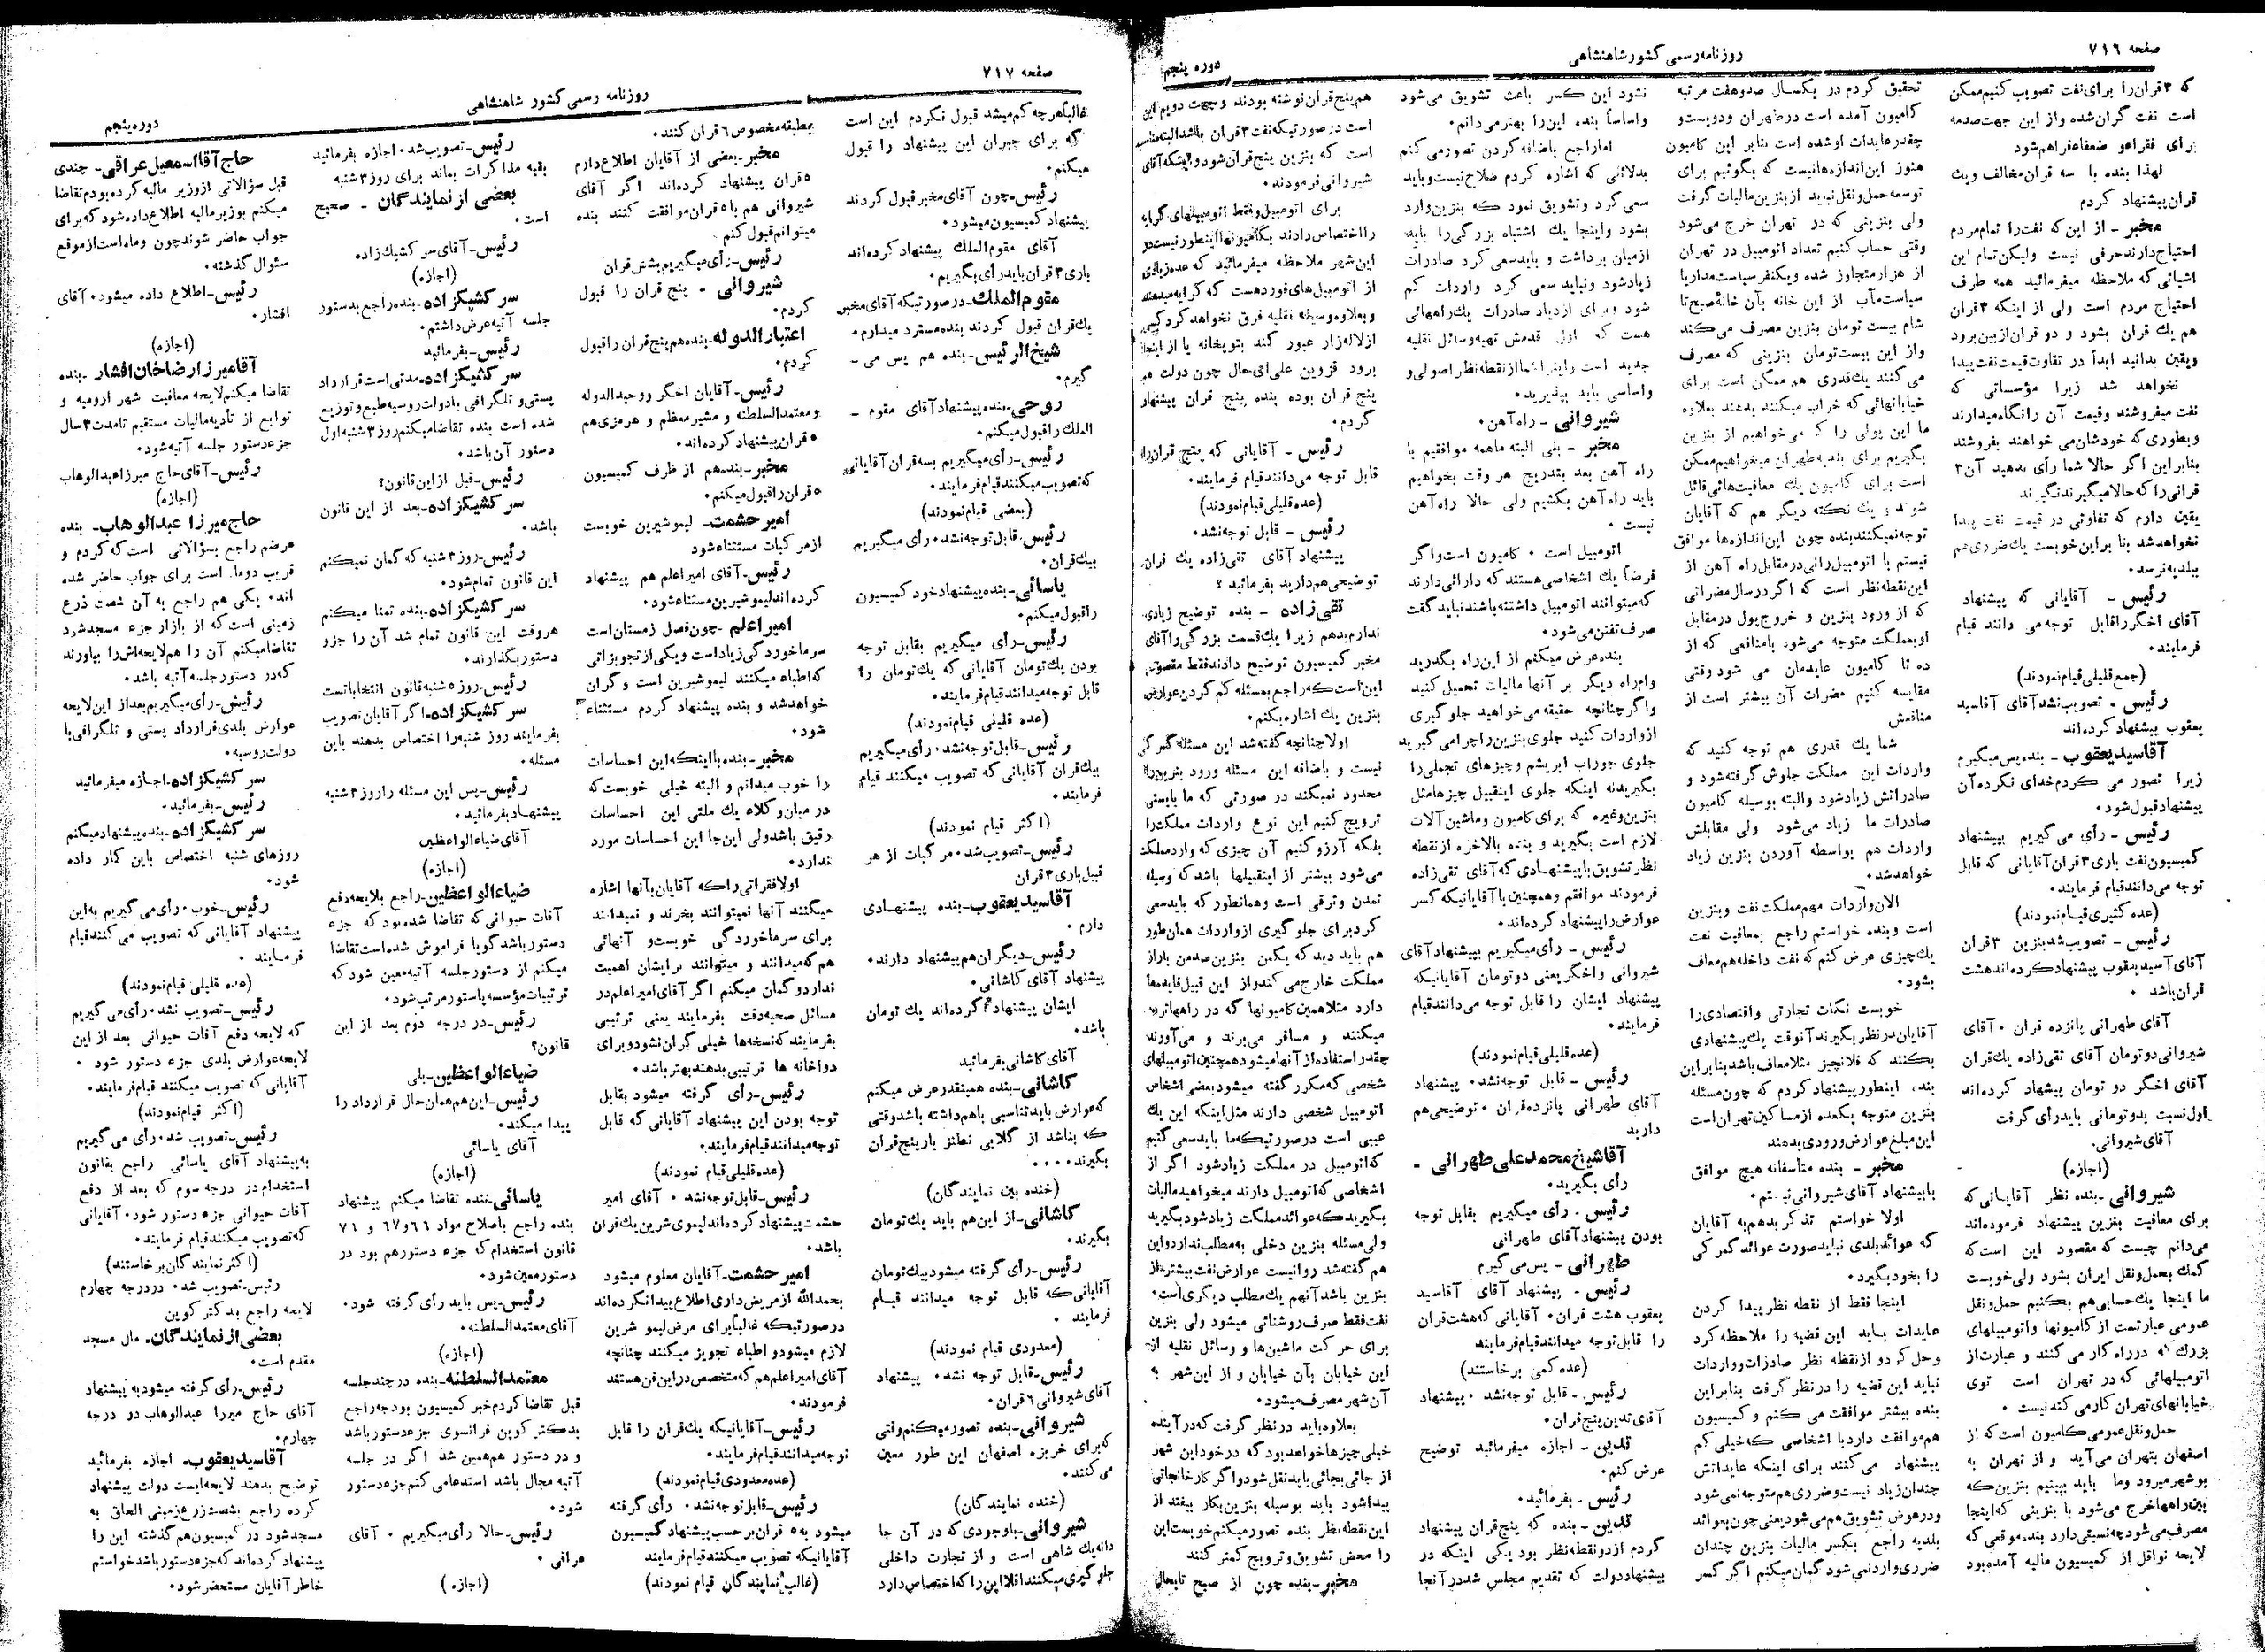 صفحه ۷۱۶
روزنامه رسمی کشور شاهنشاهی
دوره پنجم
که ۳ قران را برای نفت تصویب کنیم ممکن
است نفت گران شده و از این جهت صدمه
برای فقرا و ضعفاء فراهم شود
لهذا بنده با سه قران مخالف و یك
قران پیشنهاد کردم
مخبر - از این که نفت را تمام مردم
احتیاج دارند حرفی نیست ولیکن تمام این
اشیائی که ملاحظه میفرمائید همه طرف
احتیاج مردم است ولی از اینکه ۳ قران
هم یك قران بشود و دو قران از بین برود
ویقین بدانید ابداً در تفاوت قیمت نفت پیدا
نخواهد شد زیرا مؤسساتی که
نفت میفروشند وقیمت آن را نگاه میدارند
وبطوری که خودشان می خواهند بفروشند
بنابراین اگر حالا شما رأی بدهید آن ۳
قرانی را که حالا میگیرند نگیرند
یقین دارم که تفاوتی در قیمت نفت پیدا
نخواهد شد بنا براین خوبست یك ضرری هم
ببلدیه نرسد.
رئیس - آقایانی که پیشنهاد
آقای اخگر را قابل توجه می دانند قیام
فرمایند.
(جمع قلیلی قیام نمودند)
رئیس - تصویب نشد آقای آقاسید
یعقوب پیشنهاد کرده‌اند
آقاسید یعقوب - بنده پس میگیرم
زیرا تصور می کردم خدای نکرده آن
پیشنهاد قبول شود.
رئیس - رأی می گیریم بپیشنهاد
کمیسیون نفت باری ۳ قران آقایانی که قابل
توجه می دانند قیام فرمایند.
(عده کثیری قیام نمودند)
رئیس - تصویب شد بنزین ۳ قران
آقای آسید یعقوب پیشنهاد کرده اند هشت
قران باشد .
آقای طهرانی پانزده قران . آقای
شیروانی دو تومان آقای تقی زاده یك قران
آقای اخگر دو تومان پیشنهاد کرده اند
اول نسبت بدو تومانی باید رأی گرفت
آقای شیروانی.
(اجازه)
شیروانی - بنده نظر آقایانی که
برای معافیت بنزین پیشنهاد فرموده‌اند
می دانم چیست که مقصود این است که
کمك بحمل ونقل ایران بشود ولی خوبست
ما اینجا یك حسابی هم بکنیم حمل ونقل
عمومی عبارتست از کامیونها و اتومبیلهای
بزرگ که در راه کار می کنند و عبارت از
اتومبیلهائی که در تهران است توی
خیابانهای تهران کار می کند نیست .
حمل ونقل عمومی کامیون است که از
اصفهان بتهران می آید و از تهران به
بوشهر میرود وما باید ببینیم بنزین که
بین راهها خرج می شود با بنزینی که اینجا
مصرف می شود چه نسبتی دارد بنده موقعی که
لایحه نواقل از کمیسیون مالیه آمده بود
تحقیق کردم در یکسال صد و هفت مرتبه
کامیون آمده است در طهران و دویست و
چقدر عایدات او شده است بنابر این کامیون
هنوز این اندازه‌ها نیست که بگوئیم برای
توسعه حمل ونقل نباید از بنزین مالیات گرفت
ولی بنزینی که در تهران خرج می شود
وقتی حساب کنیم تعداد اتومبیل در تهران
از هزار متجاوز شده ویکنفر سیاست مدار یا
سیاست مآب از این خانه بآن خانهٔ صبح تا
شام بیست تومان بنزین مصرف می کند
واز این بیست تومان بنزینی که مصرف
می کنند یك قدری هم ممکن است برای
خیابانهائی که خراب میکنند بدهند بعلاوه
ما این پولی را که می خواهیم از بنزین
بگیریم برای بلدیه طهران میخواهیم ممکن
است برای کامیون یك معافیت هائی قائل
شوند و یك نکته دیگر هم که آقایان
توجه نمیکنند بنده چون این اندازه‌ها موافق
نیستم با اتومبیل رانی در مقابل راه آهن از
این نقطه نظر است که اگر در سال مضراتی
که از ورود بنزین و خروج پول در مقابل
او بمملکت متوجه می شود بامنافعی که از
ده تا کامیون عایدمان می شود وقتی
مقایسه کنیم مضرات آن بیشتر است از
منافعش
شما یك قدری هم توجه کنید که
واردات این مملکت جلوش گرفته شود و
صادراتش زیاد شود والبته بوسیله کامیون
صادرات ما زیاد می شود ولی مقابلش
واردات هم بواسطه آوردن بنزین زیاد
خواهد شد.
الان واردات مهم مملکت نفت و بنزین
است و بنده خواستم راجع بمعافیت نفت
یك چیزی عرض کنم که نفت داخله هم معاف
بشود.
خوبست نکات تجارتی واقتصادی را
آقایان در نظر بگیرند آنوقت یك پیشنهادی
بکنند که فلانچیز مثلا معاف باشد بنابراین
بنده اینطور پیشنهاد کردم که چون مسئله
بنزین متوجه یکعده از مساکین تهران است
این مبلغ عوارض ورودی بدهند
مخبر - بنده متأسفانه هیچ موافق
با پیشنهاد آقای شیروانی نیستم.
اولا خواستم تذکر بدهم به آقایان
که عوائد بلدی نباید صورت عوائد گمرکی
را بخود بگیرد.
اینجا فقط از نقطه نظر پیدا کردن
عایدات باید این قضیه را ملاحظه کرد
وحل کرد و از نقطه نظر صادرات و واردات
نباید این قضیه را در نظر گرفت بنابراین
بنده بیشتر موافقت می کنم و کمیسیون
هم موافقت دارد با اشخاصی که خیلی کم
پیشنهاد می کنند برای اینکه عایداتش
چندان زیاد نیست وضرری هم متوجه نمی شود
ودر عوض تشویق هم می شود یعنی چون بعوائد
بلدیه راجع بکسر مالیات بنزین چندان
ضرری وارد نمی شود گمان میکنم اگر کسر
نشود این کسر باعث تشویق می شود
واساساً بنده این را بهتر می دانم.
اما راجع باضافه کردن تصور می کنم
بدلائلی که اشاره کردم صلاح نیست و باید
سعی کرد و تشویق نمود که بنزین وارد
بشود واینجا یك اشتباه بزرگی را باید
از میان برداشت و باید سعی کرد صادرات
زیاد شود ونباید سعی کرد واردات کم
شود وبرای ازدیاد صادرات یك راههائی
هست که اول قدمش تهیه وسائل نقلیه
جدید است واین را شما از نقطه نظر اصولی و
واساسی باید بپذیرید.
شیروانی - راه آهن.
مخبر - بلی البته ماهمه موافقیم با
راه آهن بعد بتدریج هر وقت بخواهیم
باید راه آهن بکشیم ولی حالا راه آهن
نیست .
اتومبیل است . کامیون است واگر
فرضاً یك اشخاصی هستند که دارائی دارند
که میتوانند اتومبیل داشته باشند نباید گفت
صرف تفنن می شود.
بنده عرض میکنم از این راه بگذرید
واز راه دیگر بر آنها مالیات تحمیل کنید
واگر چنانچه حقیقه می خواهید جلو گیری
از واردات کنید جلوی بنزین را چرا می گیرید
جلوی جوراب ابریشم وچیزهای تجملی را
بگیرید نه اینکه جلوی اینقبیل چیزها مثل
بنزین وغیره که برای کامیون وماشین آلات
لازم است بگیرید و بنده بالاخره از نقطه
نظر تشویق با پیشنهادی که آقای تقی زاده
فرمودند موافقم وهمچنین با آقایانیکه کسر
عوارض را پیشنهاد کرده اند.
رئیس - رأی میگیریم بپیشنهاد آقای
شیروانی و اخگر یعنی دو تومان آقایانیکه
پیشنهاد ایشان را قابل توجه می دانند قیام
فرمایند.
(عده قلیلی قیام نمودند)
رئیس - قابل توجه نشد. پیشنهاد
آقای طهرانی پانزده قران . توضیحی هم
دارید
آقا شیخ محمد علی طهرانی -
رأی بگیرید.
رئیس - رأی میگیریم بقابل توجه
بودن پیشنهاد آقای طهرانی
طهرانی - پس می گیرم
رئیس - پیشنهاد آقای آقاسید
یعقوب هشت قران. آقایانی که هشت قران
را قابل توجه میدانند قیام فرمایند
(عده کمی برخاستند)
رئیس - قابل توجه نشد . پیشنهاد
آقای تدین پنج قران.
تدین - اجازه میفرمائید توضیح
عرض کنم.
رئیس - بفرمائید.
تدین - بنده که پنج قران پیشنهاد
کردم از دو نقطه نظر بود یکی اینکه در
پیشنهاد دولت که تقدیم مجلس شد در آنجا
هم پنج قران نوشته بودند و جهت دویم این
است در صورتیکه نفت ۳ قران باشد البته مناسب
است که بنزین پنج قران شود و اینکه آقای
شیروانی فرمودند.
برای اتومبیل و فقط اتومبیلهای کرایه
را اختصاص دادند بکامیونها اینطور نیست در
این شهر ملاحظه میفرمائید که عده زیادی
از اتومبیل های فورد هست که کرایه میدهند
و بعلاوه وسیله نقلیه فرق نخواهد کرد کسی
از لاله زار عبور کند بتوپخانه یا از اینجا
برود قزوین علی ای حال چون دولت هم
پنج قران بوده بنده پنج قران پیشنهاد
کردم.
رئیس - آقایانی که پنج قران را
قابل توجه می دانند قیام فرمایند.
(عده قلیلی قیام نمودند)
رئیس - قابل توجه نشد.
پیشنهاد آقای تقی زاده یك قران
توضیحی هم دارید بفرمائید ؟
تقی زاده - بنده توضیح زیادی
ندارم بدهم زیرا یك قسمت بزرگی را آقای
مخبر کمیسیون توضیح دادند فقط مقصودم
این است که راجع بمسئله کم کردن عوارض
بنزین یك اشاره بکنم.
اولا چنانچه گفته شد این مسئله گمرکی
نیست و باضافه این مسئله ورود بنزین را
محدود نمیکند در صورتی که ما بایستی
ترویج کنیم این نوع واردات مملکت را
بلکه آرزو کنیم آن چیزی که وارد مملکت
می شود بیشتر از اینقبیلها باشد که وسیله
تمدن وترقی است وهمانطور که باید سعی
کرد برای جلو گیری از واردات همان طور
هم باید دید که یکمن بنزین صد من بار از
مملکت خارج می کند و از این قبیل فایده ها
دارد مثلا همین کامیونها که در راهها تردد
میکنند و مسافر می برند و می آورند
چقدر استفاده از آنها میشود همچنین اتومبیلهای
شخصی که مکرر گفته میشود بعضی اشخاص
اتومبیل شخصی دارند مثل اینکه این یك
عیبی است در صورتیکه ما باید سعی کنیم
که اتومبیل در مملکت زیاد شود اگر از
اشخاصی که اتومبیل دارند میخواهید مالیات
بگیرید که عوائد مملکت زیاد شود بگیرید
ولی مسئله بنزین دخلی به مطلب ندارد و این
هم گفته شد روا نیست عوارض نفت بیشتر از
بنزین باشد آنهم یك مطلب دیگری است.
نفت فقط صرف روشنائی میشود ولی بنزین
برای حرکت ماشین ها و وسائل نقلیه از
این خیابان بآن خیابان و از این شهر به
آن شهر مصرف میشود.
بعلاوه باید در نظر گرفت که در آینده
خیلی چیزها خواهد بود که در خود این شهر
از جائی بجائی باید نقل شود و اگر کارخانجاتی
پیدا شود باید بوسیله بنزین بکار بیفتد از
این نقطه نظر بنده تصور میکنم خوبست این
را محض تشویق و ترویج کمتر کنند
مخبر - بنده چون از صبح تا بحال
صفحه ۷۱۷
روزنامه رسمی کشور شاهنشاهی
دوره پنجم
غالباً هر چه کم میشد قبول نکردم این است
که برای جبران این پیشنهاد را قبول
میکنم.
رئیس - چون آقای مخبر قبول کردند
پیشنهاد کمیسیون میشود.
آقای مقوم الملك پیشنهاد کرده‌اند
باری ۳ قران باید رأی بگیریم.
مقوم الملك - در صورتیکه آقای مخبر
یك قران قبول کردند بنده مسترد میدارم.
شیخ الرئیس - بنده هم پس می -
گیرم.
روحی - بنده پیشنهاد آقای مقوم -
الملك را قبول میکنم.
رئیس - رأی میگیریم بسه قران آقایانی
که تصویب میکنند قیام فرمایند.
(بعضی قیام نمودند)
رئیس - قابل توجه نشد . رأی میگیریم
بیك قران.
یاسائی - بنده پیشنهاد خود کمیسیون
را قبول میکنم.
رئیس - رأی میگیریم بقابل توجه
بودن یك تومان آقایانی که یك تومان را
قابل توجه میدانند قیام فرمایند.
(عده قلیلی قیام نمودند)
رئیس - قابل توجه نشد . رأی میگیریم
بیك قران آقایانی که تصویب میکنند قیام
فرمایند.
(اکثر قیام نمودند)
رئیس - تصویب شد . مرکبات از هر
قبیل باری ۳ قران
آقاسید یعقوب - بنده پیشنهادی
دارم .
رئیس - دیگران هم پیشنهاد دارند.
پیشنهاد آقای کاشانی.
ایشان پیشنهاد کرده اند یك تومان
باشد.
آقای کاشانی بفرمائید
کاشانی - بنده همینقدر عرض میکنم
که عوارض باید تناسبی باهم داشته باشد وقتی
که بناشد از گلابی نطنز بار پنج قران
بگیرند . . . .
(خنده بین نمایندگان)
کاشانی - از این هم باید یك تومان
بگیرند.
رئیس - رأی گرفته میشود بیك تومان
آقایانی که قابل توجه میدانند قیام
فرمایند .
(معدودی قیام نمودند)
رئیس - قابل توجه نشد . پیشنهاد
آقای شیروانی ۶ قران.
شیروانی - بنده تصور میکنم وقتی
که برای خربزه اصفهان این طور معین
می کنند.
(خنده نمایندگان)
شیروانی - باوجودی که در آن جا
دانه یك شاهی است و از تجارت داخلی
جلوگیری میکنند اقلا این را که اختصاص دارد
بمطبقه مخصوص ۶ قران کنند.
مخبر - بعضی از آقایان اطلاع دارم
۵ قران پیشنهاد کرده‌اند اگر آقای
شیروانی هم با ۵ قران موافقت کنند بنده
میتوانم قبول کنم
رئیس - رأی میگیریم بشش قران
شیروانی - پنج قران را قبول
کردم.
اعتبار الدوله - بنده هم پنج قران را قبول
کردم.
رئیس - آقایان اخگر ووحید الدوله
ومعتمد السلطنه و مشیر معظم و هرمزی هم
۵ قران پیشنهاد کرده اند.
مخبر - بنده هم از طرف کمیسیون
۵ قران را قبول میکنم.
امیر حشمت - لیمو شیرین خوبست
از مرکبات مستثناء شود
رئیس - آقای امیر اعلم هم پیشنهاد
کرده اند لیمو شیرین مستثناء شود.
امیر اعلم - چون فصل زمستان است
سرما خوردگی زیاد است و یکی از تجویزاتی
که اطباء میکنند لیمو شیرین است و گران
خواهد شد و بنده پیشنهاد کردم مستثناء
شود.
مخبر - بنده با اینکه این احساسات
را خوب میدانم و البته خیلی خوبست که
در میان وکلاء یك ملتی این احساسات
رقیق باشد ولی این جا این احساسات مورد
ندارد.
اولا فقراتی را که آقایان بآنها اشاره
میکنند آنها نمیتوانند بخرند و نمیدانند
برای سرما خوردگی خوبست و آنهائی
هم که میدانند و میتوانند برایشان اهمیت
ندارد و گمان میکنم اگر آقای امیر اعلم در
مسائل صحیه دقت بفرمایند یعنی ترتیبی
بفرمایند که نسخه ها خیلی گران نشود و برای
دواخانه ها ترتیبی بدهند بهتر باشد.
رئیس - رأی گرفته میشود بقابل
توجه بودن این پیشنهاد آقایانی که قابل
توجه میدانند قیام فرمایند.
(عده قلیلی قیام نمودند)
رئیس - قابل توجه نشد . آقای امیر
حشمت پیشنهاد کرده اند لیموی شرین یك قران
باشد.
امیر حشمت - آقایان معلوم میشود
بحمد الله از مریض داری اطلاع پیدا نکرده اند
در صورتیکه غالباً برای مرض لیمو شرین
لازم میشود و اطباء تجویز میکنند چنانچه
آقای امیر اعلم هم که متخصص در این فن هستند
فرمودند.
رئیس - آقایانیکه یك قران را قابل
توجه میدانند قیام فرمایند.
(عده معدودی قیام نمودند)
رئیس - قابل توجه نشد . رأی گرفته
میشود به ۵ قران بر حسب پیشنهاد کمیسیون
آقایانیکه تصویب میکنند قیام فرمایند
(غالب نمایندگان قیام نمودند)
رئیس - تصویب شد . اجازه بفرمائید
بقیه مذاکرات بماند برای روز ۳ شنبه
بعضی از نمایندگان - صحیح
است.
رئیس - آقای سر کشیك زاده
(اجازه)
سر کشیکزاده - بنده راجع بدستور
جلسه آتیه عرض داشتم.
رئیس - بفرمائید
سر کشیکزاده - مدتی است قرارداد
پستی و تلگرافی با دولت روسیه طبع و توزیع
شده است بنده تقاضا میکنم روز ۳ شنبه اول
دستور آن باشد.
رئیس - قبل از این قانون؟
سر کشیکزاده - بعد از این قانون
باشد.
رئیس - روز ۳ شنبه که گمان نمیکنم
این قانون تمام شود.
سر کشیکزاده - بنده تمنا میکنم
هر وقت این قانون تمام شد آن را جزو
دستور بگذارند.
رئیس - روز ۵ شنبه قانون انتخاباتست
سر کشیکزاده - اگر آقایان تصویب
بفرمایند روز شنبه را اختصاص بدهند باین
مسئله .
رئیس - پس این مسئله را روز ۳ شنبه
پیشنهاد بفرمائید.
آقای ضیاء الواعظین
(اجازه)
ضیاء الواعظین - راجع بلایحه دفع
آفات حیوانی که تقاضا شده بود که جزء
دستور باشد گویا فراموش شده است تقاضا
میکنم از دستور جلسه آتیه معین شود که
ترتیبات مؤسسه پاستور مرتب شود.
رئیس - در درجه دوم بعد از این
قانون؟
ضیاء الواعظین - بلی
رئیس - این هم همان حال قرارداد را
پیدا میکند.
آقای یاسائی
(اجازه)
یاسائی - بنده تقاضا میکنم پیشنهاد
بنده راجع باصلاح مواد ۶۶ و ۶۷ و ۷۱
قانون استخدام که جزء دستور هم بود در
دستور معین شود.
رئیس - پس باید رأی گرفته شود.
آقای معتمد السلطنه.
(اجازه)
معتمد السلطنه - بنده در چند جلسه
قبل تقاضا کردم خبر کمیسیون بودجه راجع
بدکتر کوین فرانسوی جزء دستور باشد
و در دستور هم همین شد اگر در جلسه
آتیه مجال باشد استدعا می کنم جزء دستور
شود.
رئیس - حالا رأی میگیریم . آقای
عراقی .
(اجازه)
حاج آقا اسمعیل عراقی - چندی
قبل سؤالاتی از وزیر مالیه کرده بودم تقاضا
میکنم بوزیر مالیه اطلاع داده شود که برای
جواب حاضر شوند چون دو ماه است از موقع
سئوال گذشته.
رئیس - اطلاع داده میشود . آقای
افشار .
(اجازه)
آقا میرزا رضاخان افشار - بنده
تقاضا میکنم لایحه معافیت شهر ارومیه و
توابع از تأدیه مالیات مستقیم تا مدت ۳ سال
جزء دستور جلسه آتیه شود.
رئیس - آقای حاج میرزا عبدالوهاب
(اجازه)
حاج میرزا عبدالوهاب - بنده
عرضم راجع بسؤالاتی است که کردم و
قریب دو ماه است برای جواب حاضر شده
اند . یکی هم راجع به آن شصت ذرع
زمینی است که از بازار جزء مسجد شرد
تقاضا میکنم آن را هم لایحه‌اش را بیاورند
که در دستور جلسه آتیه باشد.
رئیس - رأی میگیریم بعد از این لایحه
عوارض بلدی قرارداد پستی و تلگرافی با
دولت روسیه.
سر کشیکزاده - اجازه میفرمائید
رئیس - بفرمائید.
سر کشیکزاده - بنده پیشنهاد میکنم
روزهای شنبه اختصاص باین کار داده
شود.
رئیس - خوب . رأی می گیریم به این
پیشنهاد آقایانی که تصویب می کنند قیام
فرمایند .
(عده قلیلی قیام نمودند)
رئیس - تصویب نشد . رأی می گیریم
که لایحه دفع آفات حیوانی بعد از این
لایحه عوارض بلدی جزء دستور شود .
آقایانی که تصویب میکنند قیام فرمایند.
(اکثر قیام نمودند)
رئیس - تصویب شد . رأی می گیریم
به پیشنهاد آقای یاسائی راجع بقانون
استخدام در درجه سوم که بعد از دفع
آفات حیوانی جزء دستور شود . آقایانی
که تصویب میکنند قیام فرمایند.
(اکثر نمایندگان برخاستند)
رئیس - تصویب شد . در درجه چهارم
لایحه راجع بدکتر کوین
بعضی از نمایندگان - مال مسجد
مقدم است.
رئیس - رأی گرفته میشود به پیشنهاد
آقای حاج میرزا عبدالوهاب در درجه
چهارم.
آقاسید یعقوب - اجازه بفرمائید
توضیح بدهند لایحه ایست دولت پیشنهاد
کرده راجع بشصت زرع زمینی الحاق به
مسجد شود در کمیسیون هم گذشته این را
پیشنهاد کرده اند که جزء دستور باشد خواستم
خاطر آقایان مستحضر شود.